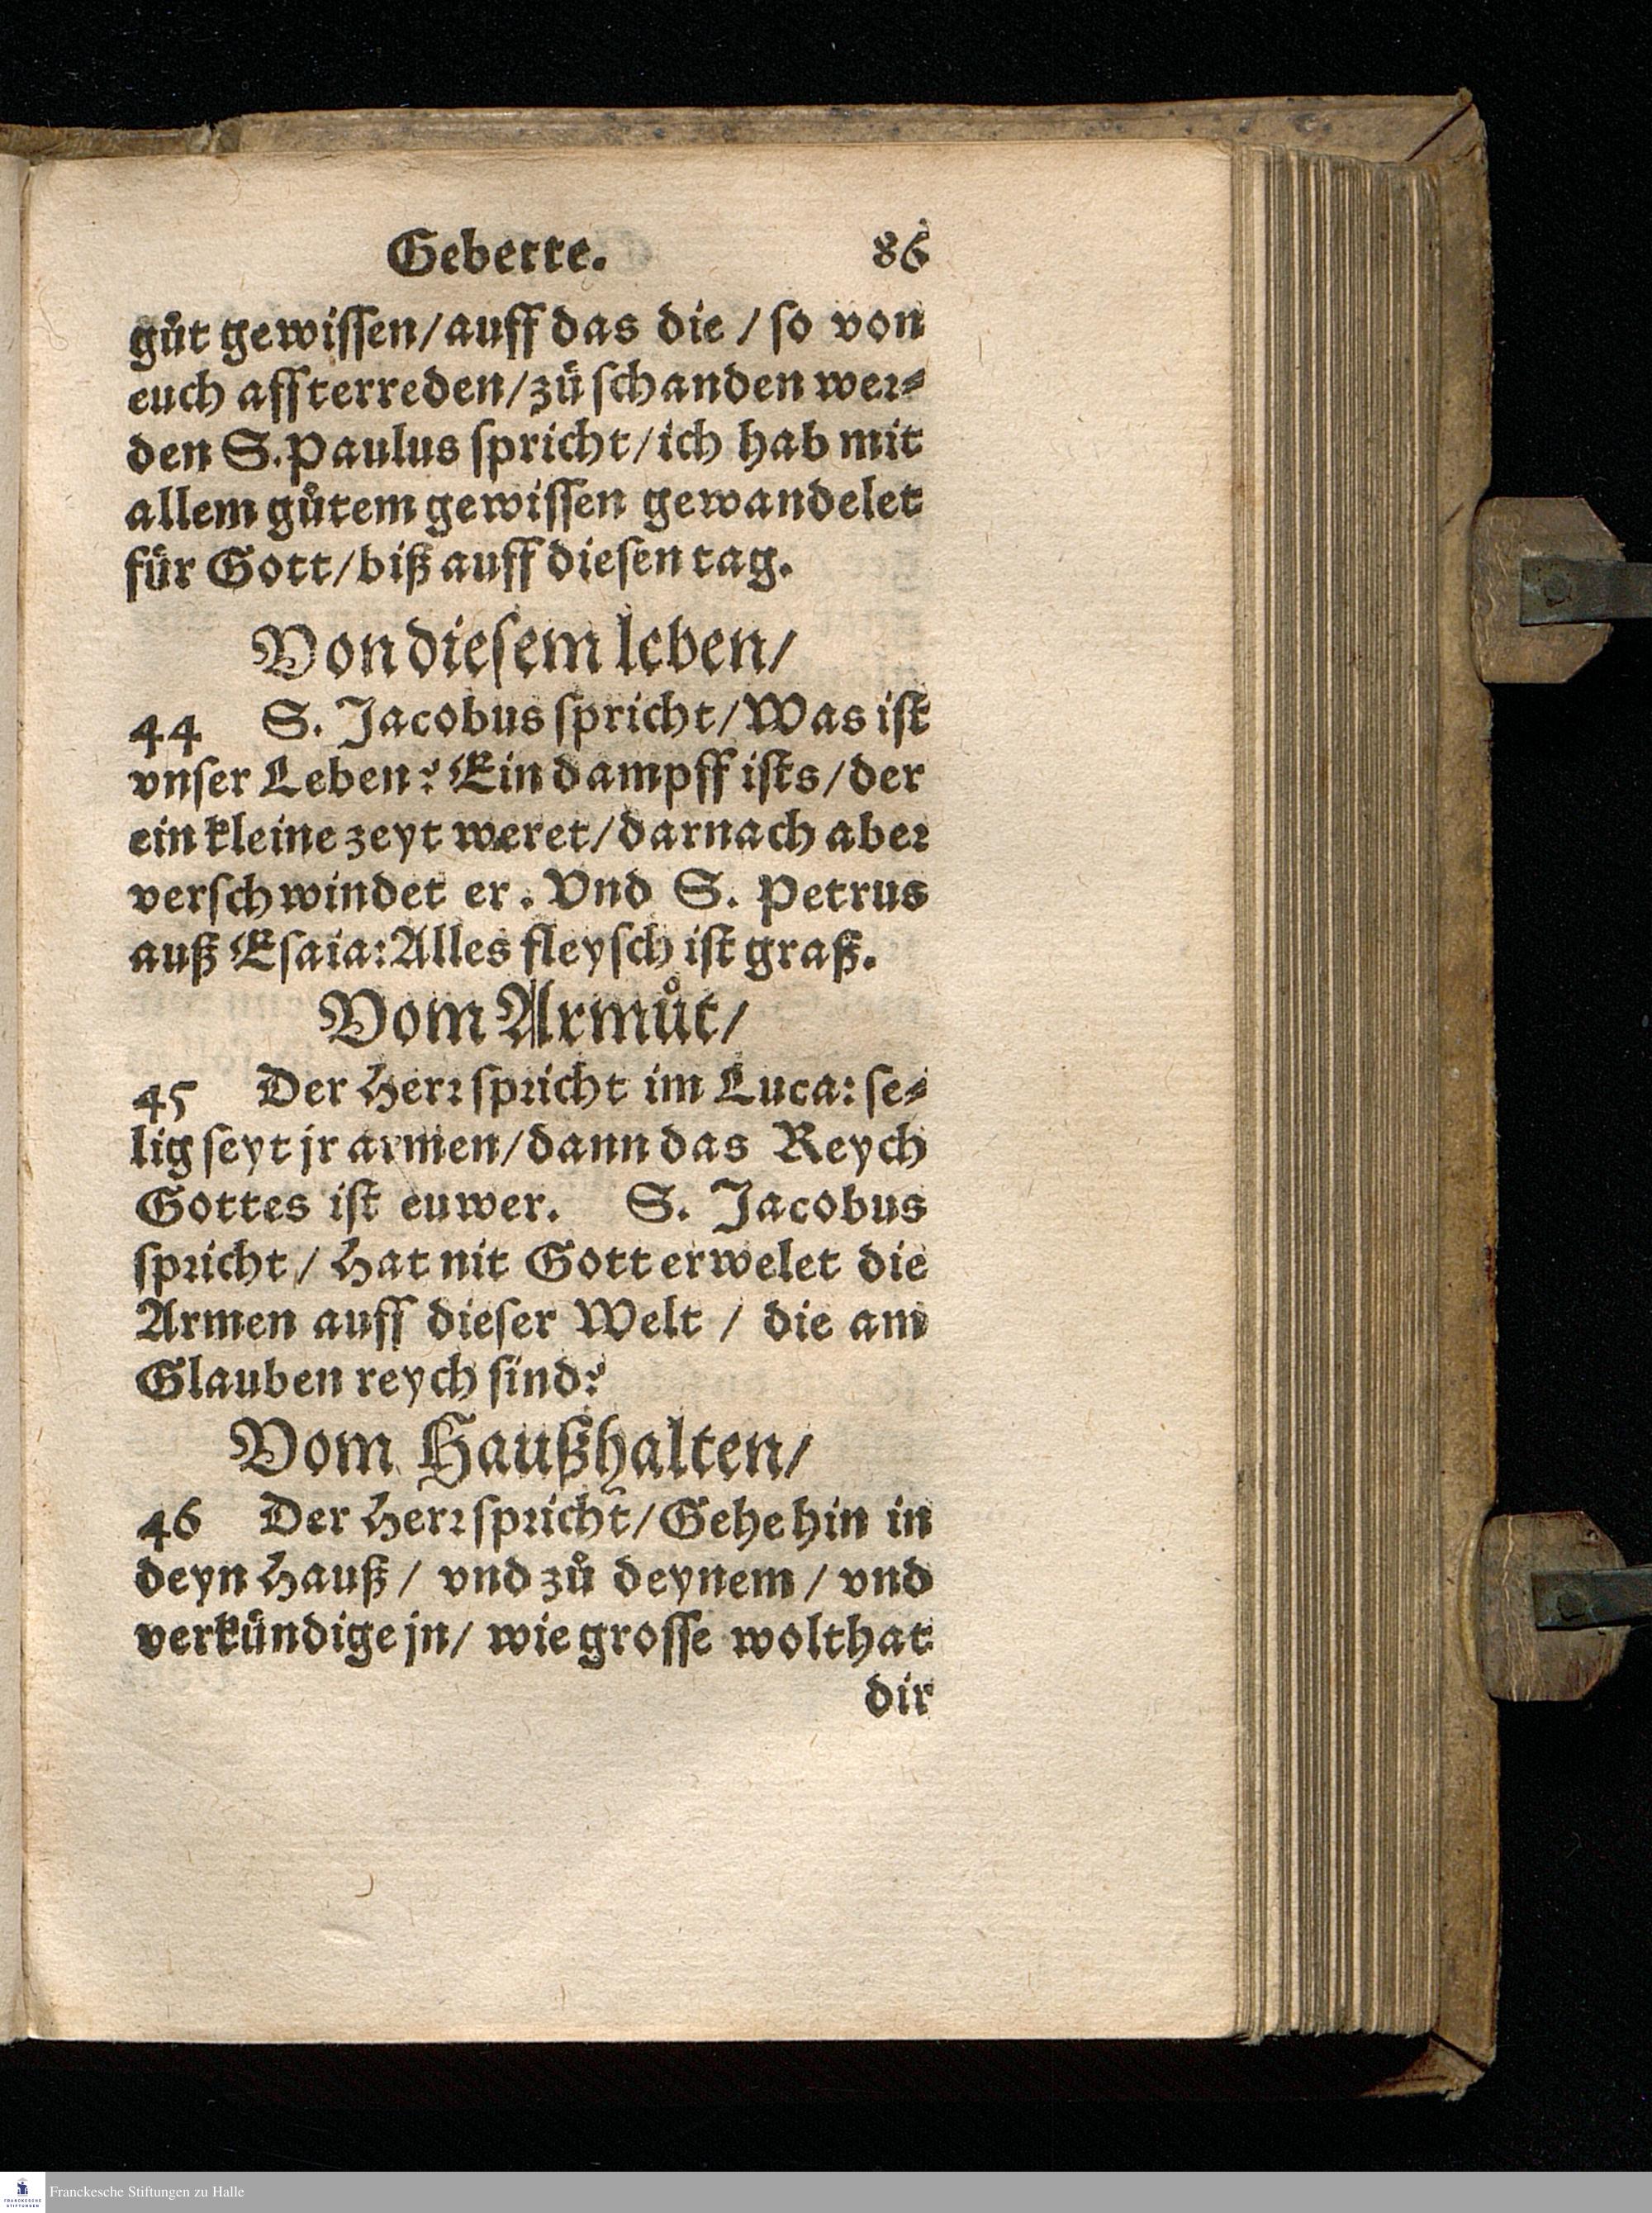 Gebette. 86
gůt gewiſſen/auff das die / ſo von
euch affterreden/zů ſchanden wer⸗
den S. Paulus ſpricht/ich hab mit
allem gůtem gewiſſen gewandelet
fůr Gott/biß auff dieſen tag.
Von dieſem leben/
44 S. Jacobus ſpricht/Was iſt
vnſer Leben? Ein dampff iſts/der
ein kleine zeyt weret/darnach aber
verſchwindet er. Vnd S. Petrus
auß Eſaia: Alles fleyſch iſt graß.
Vom Armůt/
45 Der Herr ſpricht im Luca: ſe⸗
lig ſeyt jr armen/dann das Reych
Gottes iſt euwer. S. Jacobus
ſpricht / Hat nit Gott erwelet die
Armen auff dieſer Welt / die am
Glauben reych ſind?
Vom Haußhalten/
46 Der Herr ſpricht/Gehe hin in
deyn Hauß / vnd zů deynem / vnd
verkůndige jn/ wie groſſe wolthat
dir
Franckesche Stiftungen zu Halle
FRANCKESCHE
STIFTUNGEN